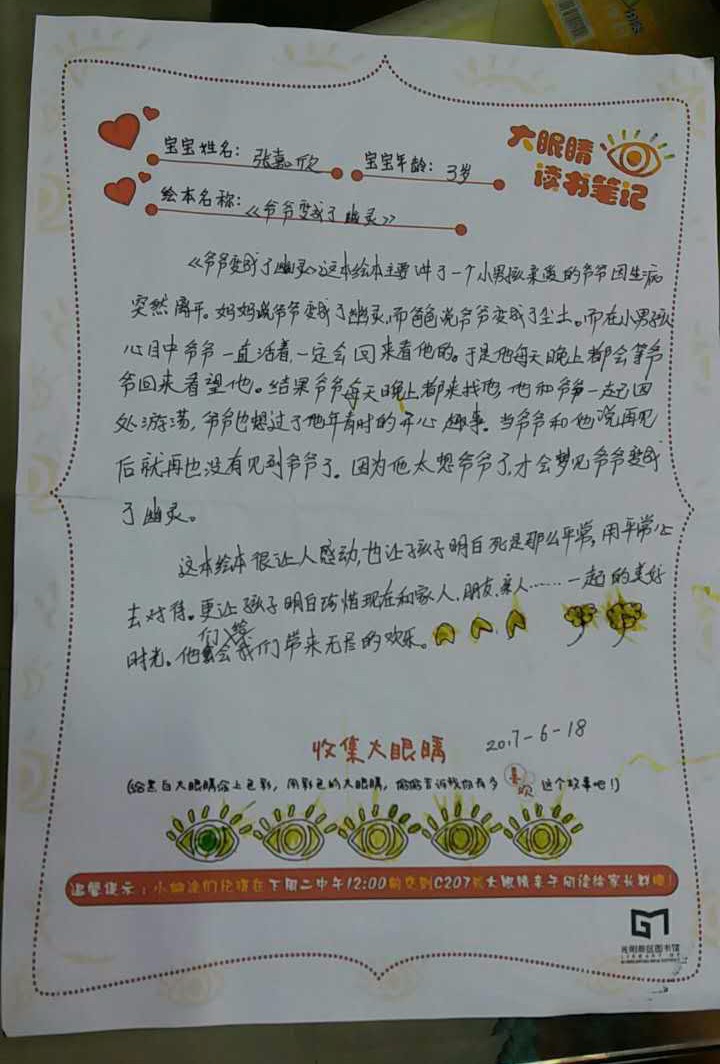 大眼睛
读书笔记
宝宝姓名：张嘉欣 宝宝年龄：3岁
绘本名称：《爷爷变成了幽灵》
《爷爷变成了幽灵》这本绘本主要讲了一个小男孩亲爱的爷爷因生病
突然离开。妈妈说爷爷变成了幽灵，而爸爸说爷爷变成了尘土。而在小男孩
心目中爷爷一直活着，一定会回来看他的。于是他每天晚上都会等爷
爷回来看望他。结果爷爷每天晚上都来找他，他和爷爷一起四
处游荡，爷爷也想过了他年青时的开心趣事。当爷爷和他说再见
后就再也没有见到爷爷了。因为他太想爷爷了，才会梦见爷爷变成
了幽灵。
这本绘本很让人感动，也让孩子明白死是那么平常，用平常心
去对待。更让孩子明白珍惜现在和家人、朋友、亲人……一起的美好
时光。他们会给我们带来无尽的欢乐。
收集大眼睛 2017-6-18
(给黑白大眼睛涂上色彩，用彩色的大眼睛，告诉我你有多喜欢这个故事吧！)
温馨提示：小朋友们记得在下周二中午12:00前交到C207大眼睛亲子阅读馆家长群哦！
光明新区图书馆